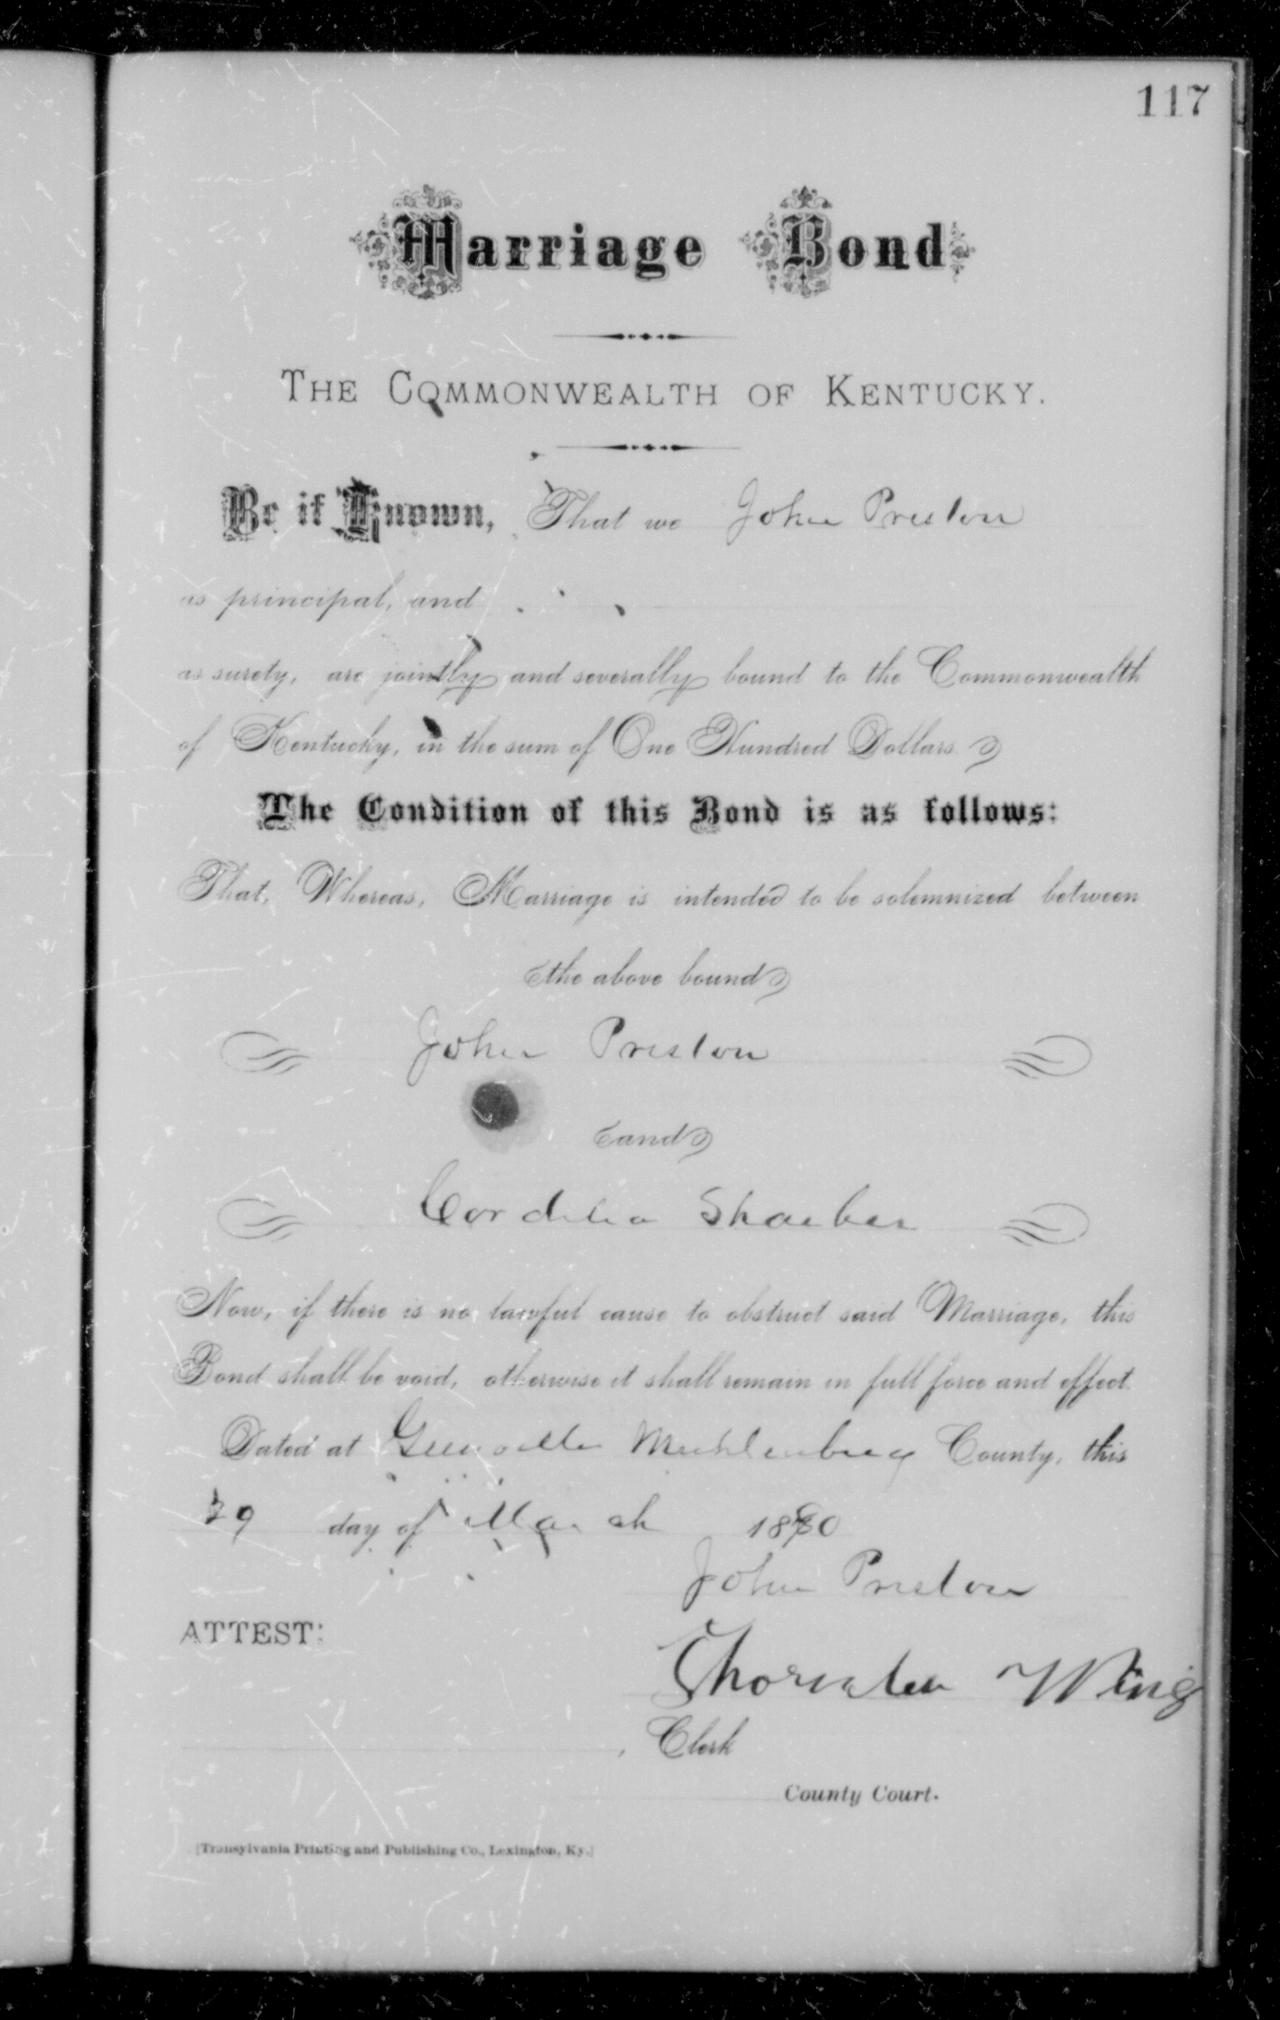 117
Marriage Bond
THE COMMONWEALTH OF KENTUCKY.
Be it Known, That we John Preston
as principal, and
as surety, are jointly and severally bound to the Commonwealth
of Kentucky, in the sum of One Hundred Dollars.
The Condition of this Bond is as follows:
That, Whereas, Marriage is intended to be solemnized between
the above bound
John Preston
and
Cordelia
Now, if there is no lawful cause to obstruct said Marriage, this
Bond shall be void, otherwise it shall remain in full force and effect.
Dated at Greenville Muhlenberg County, this
day of March 1880
John Preston
ATTEST:
Wing
, Clerk
County Court.
[Transylvania Printing and Publishing Co., Lexington, Ky.]